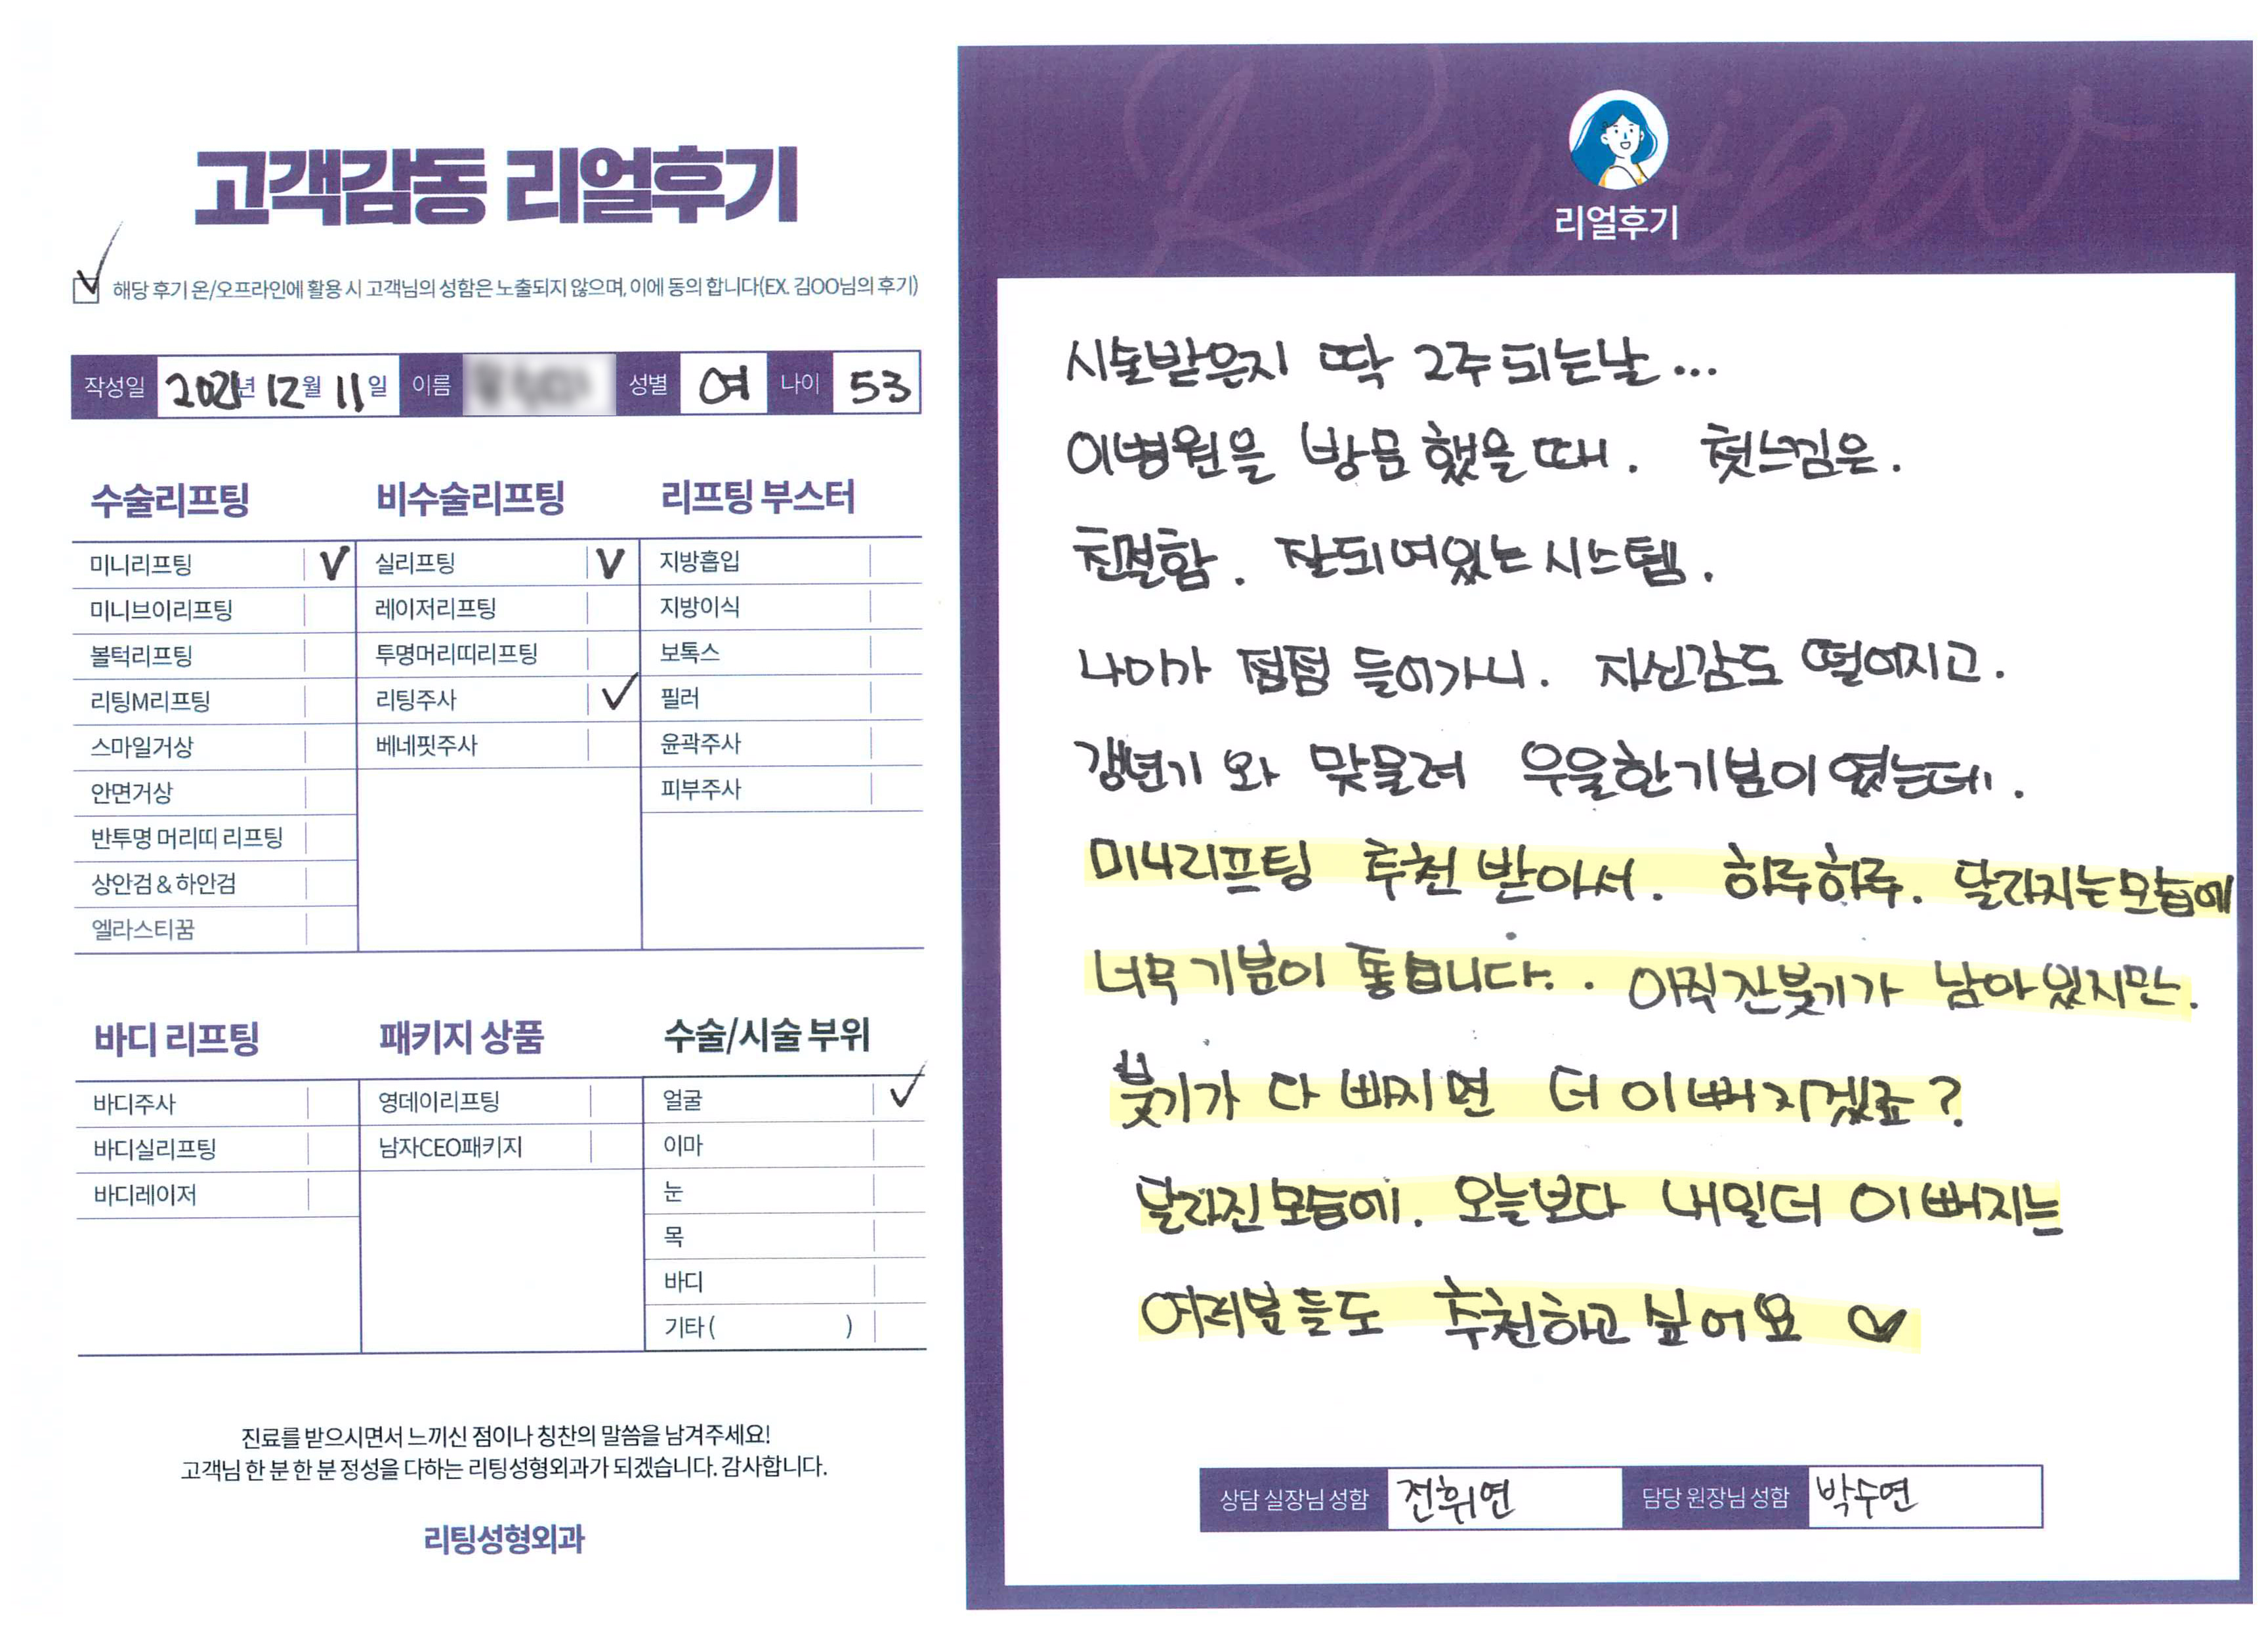 고객감동 리얼후기
해당 후기 온/오프라인에 활용 시 고객님의 성함은 노출되지 않으며, 이에 동의 합니다(EX. 김OO님의 후기)
작성일 2021년 12월 11일 이름 성별 여 나이 53
수술리프팅
미니리프팅 V
미니브이리프팅
볼턱리프팅
리팅M리프팅
스마일거상
안면거상
반투명 머리띠 리프팅
상안검 & 하안검
엘라스티꿈
비수술리프팅
실리프팅 V
레이저리프팅
투명머리띠리프팅
리팅주사 ✓
베네핏주사
리프팅 부스터
지방흡입
지방이식
보톡스
필러
윤곽주사
피부주사
바디 리프팅
바디주사
바디실리프팅
바디레이저
패키지 상품
영데이리프팅
남자CEO패키지
수술/시술 부위
얼굴 ✓
이마
눈
목
바디
기타 ( )
진료를 받으시면서 느끼신 점이나 칭찬의 말씀을 남겨주세요!
고객님 한 분 한 분 정성을 다하는 리팅성형외과가 되겠습니다. 감사합니다.
리팅성형외과
Review
리얼후기
시술받은지 딱 2주되는날...
이병원을 방문 했을때. 첫느낌은.
친절함. 잘되여있는 시스템.
나이가 점점 들어가니. 자신감도 떨어지고.
갱년기 와 맞물려 우울한기분이 였는데.
미니리프팅 추천 받아서. 하루하루. 달라지는모습에
너무 기분이 좋습니다.. 아직잔붓기가 남아있지만.
붓기가 다 빠지면 더 이뻐지겠죠?
달라진모습에. 오늘보다 내일더 이뻐지는
여러분들도 추천하고 싶어요 ♡
상담 실장님 성함 전휘연 담당 원장님 성함 박수연